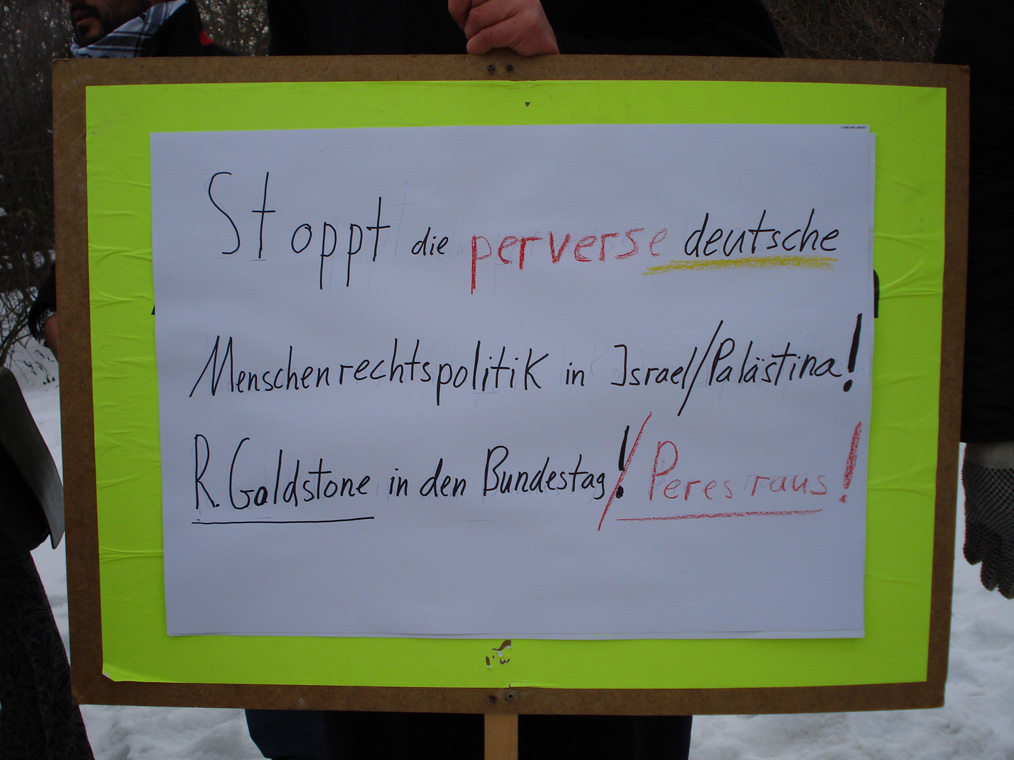 Stoppt die perverse deutsche
Menschenrechtspolitik in Israel/Palästina!
R. Goldstone in den Bundestag!/Peres raus!